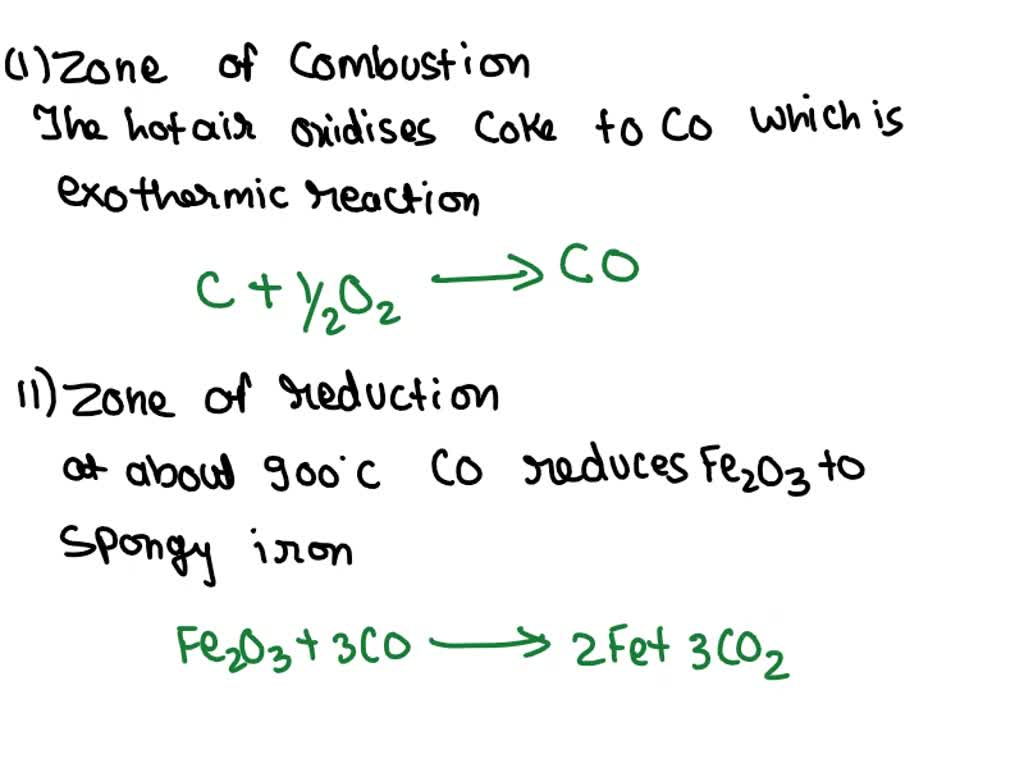 (I) Zone of Combustion
The hot air oxidises Coke to CO which is
exothermic reaction
C + 1/2 O2 → CO
II) Zone of reduction
at about 900°C CO reduces Fe2O3 to
Spongy iron
Fe2O3 + 3CO → 2Fe + 3CO2